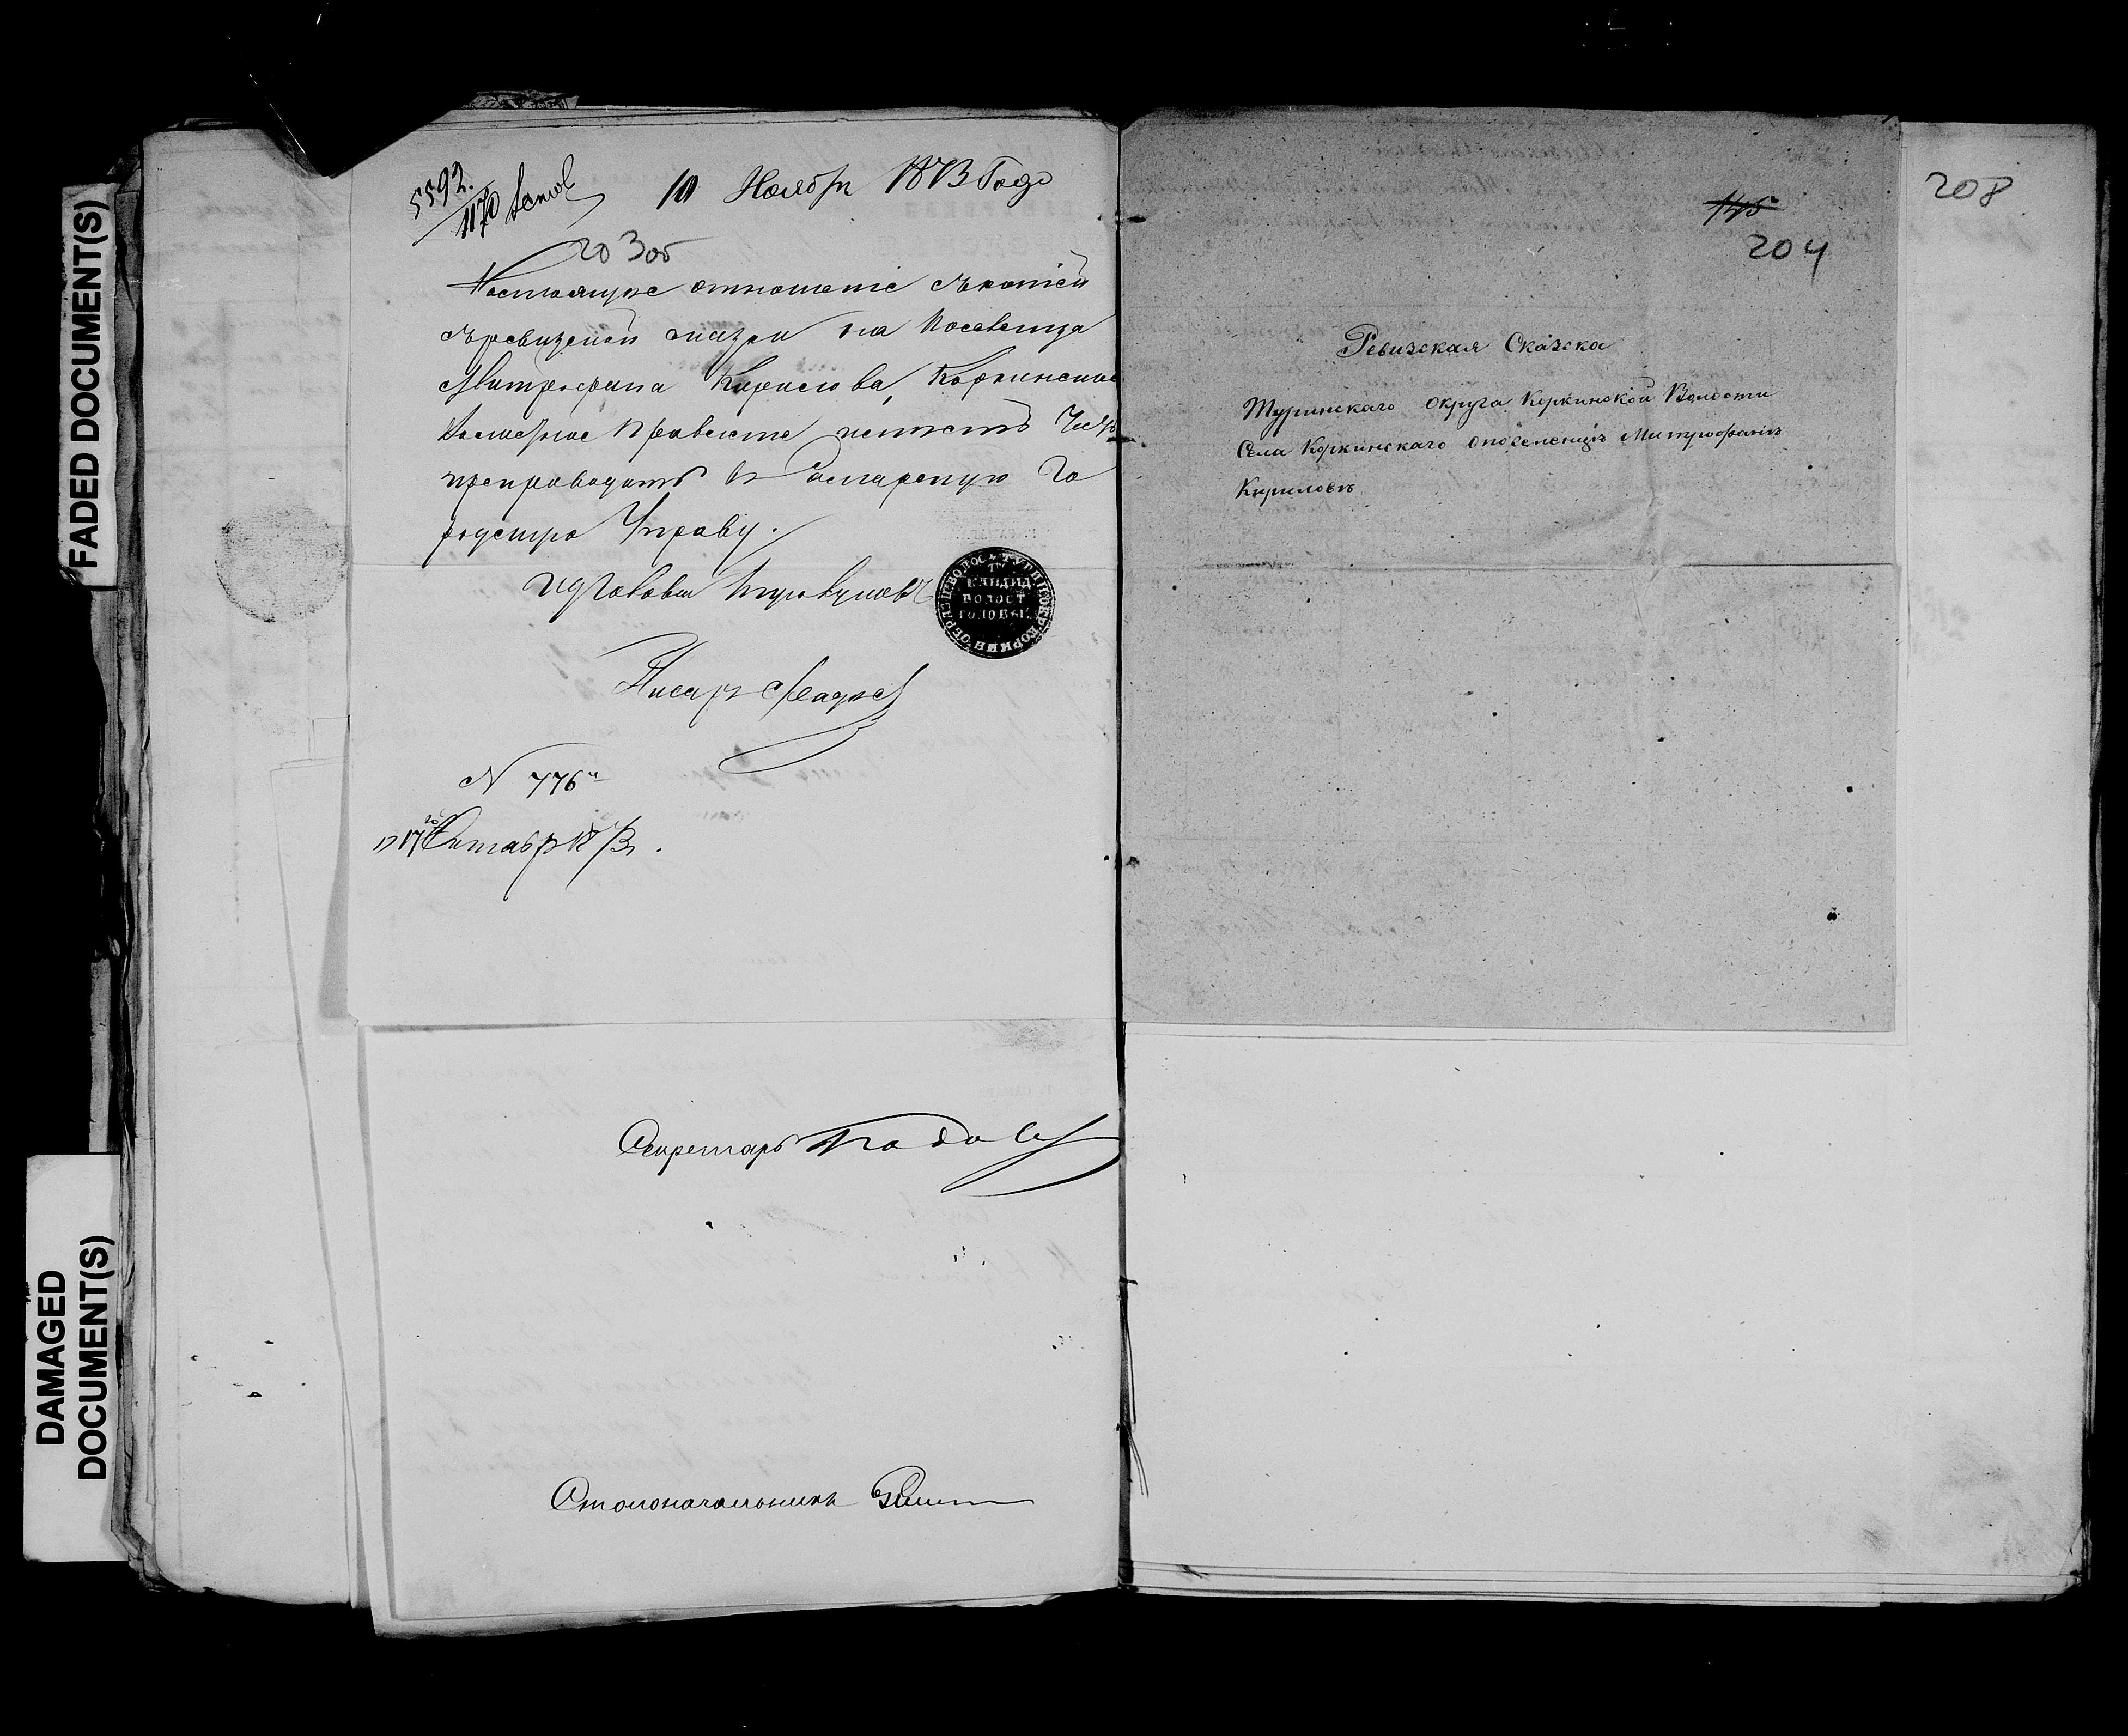 FADED DOCUMENT(S)
DAMAGED
DOCUMENT(S)
5592.
1170
10 Ноября 1873 Года
Настоящее отношеніе съ копіей
съ ревизской сказки на Поселенца
Митрофана Кирилова, Коркинское
Волостное Правленіе имѣетъ Честь
препроводить въ Самарскую Го
родскую Управу.
КАНДИД
ВОЛОСТ
ГОЛОВЫ
Писарь
N 776
17го Октября 1873.
Секретарь
Столоначальникъ
208
145
204
Ревизская Сказска
Туринскаго округа Коркинской Волости
Села Коркинскаго опоселенцѣ Митрофанѣ
Кириловѣ